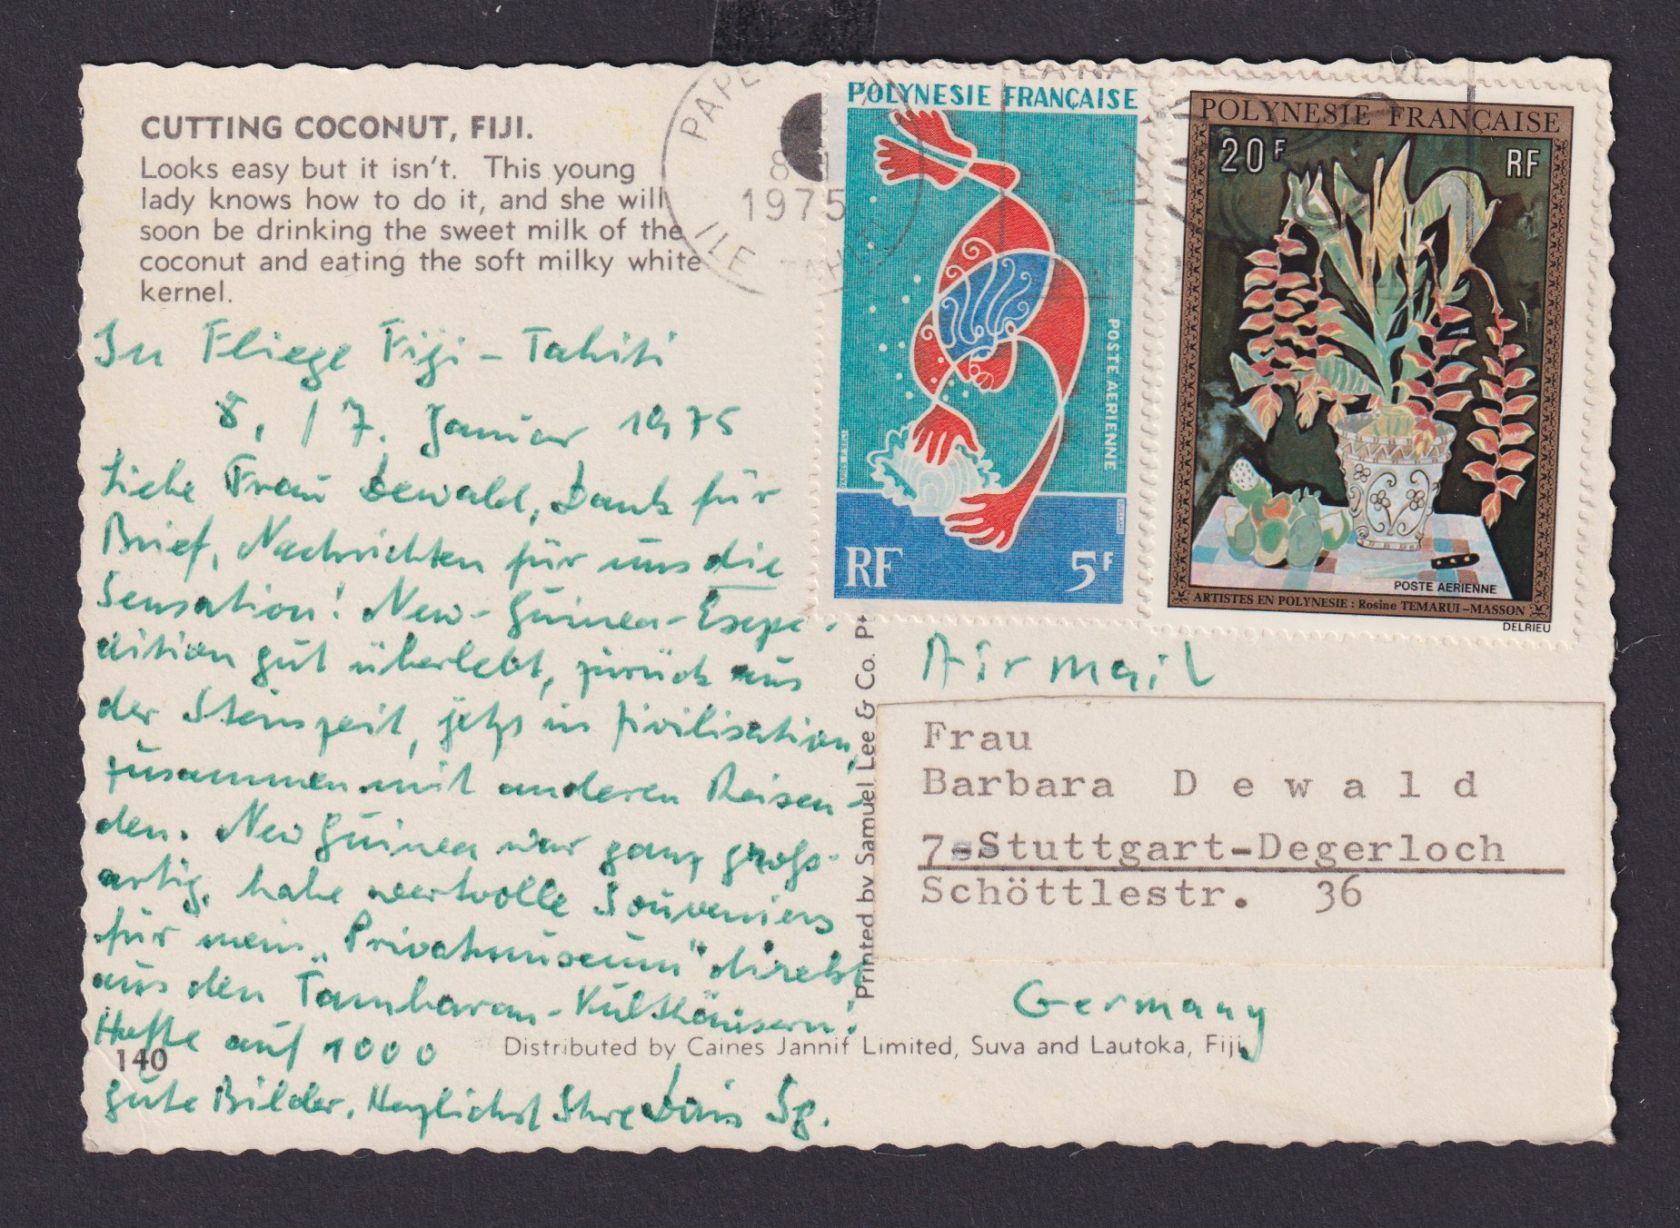 CUTTING COCONUT, FIJI.
Looks easy but it isn't. This young
lady knows how to do it, and she will
soon be drinking the sweet milk of the
coconut and eating the soft milky white
kernel.
Im Fliege Fiji - Tahiti
8. / 7. Januar 1975
Liebe Frau Dewald, Dank für
Brief, Nachrichten für uns die
Sensation! New-Guinea-Expe-
dition gut überlebt, zurück aus
der Steinzeit, jetzt in Zivilisation,
zusammen mit anderen Reisen-
den. New Guinea war ganz groß-
artig, habe wertvolle Souveniers
für mein "Privatmuseum" direkt
aus den Tambaran-Kulthäusern!
Hoffe auf 1000
gute Bilder. Herzlichst Ihre
140
Distributed by Caines Jannif Limited, Suva and Lautoka, Fiji.
Printed by Samuel Lee & Co. Pt
PAPE
8-1
1975
ILE TAHITI
POLYNESIE FRANÇAISE
POSTE AERIENNE
RF 5F
POLYNESIE FRANÇAISE
20F RF
POSTE AERIENNE
ARTISTES EN POLYNESIE : Rosine TEMARUI-MASSON
DELRIEU
Airmail
Frau
Barbara Dewald
7-Stuttgart-Degerloch
Schöttlestr. 36
Germany